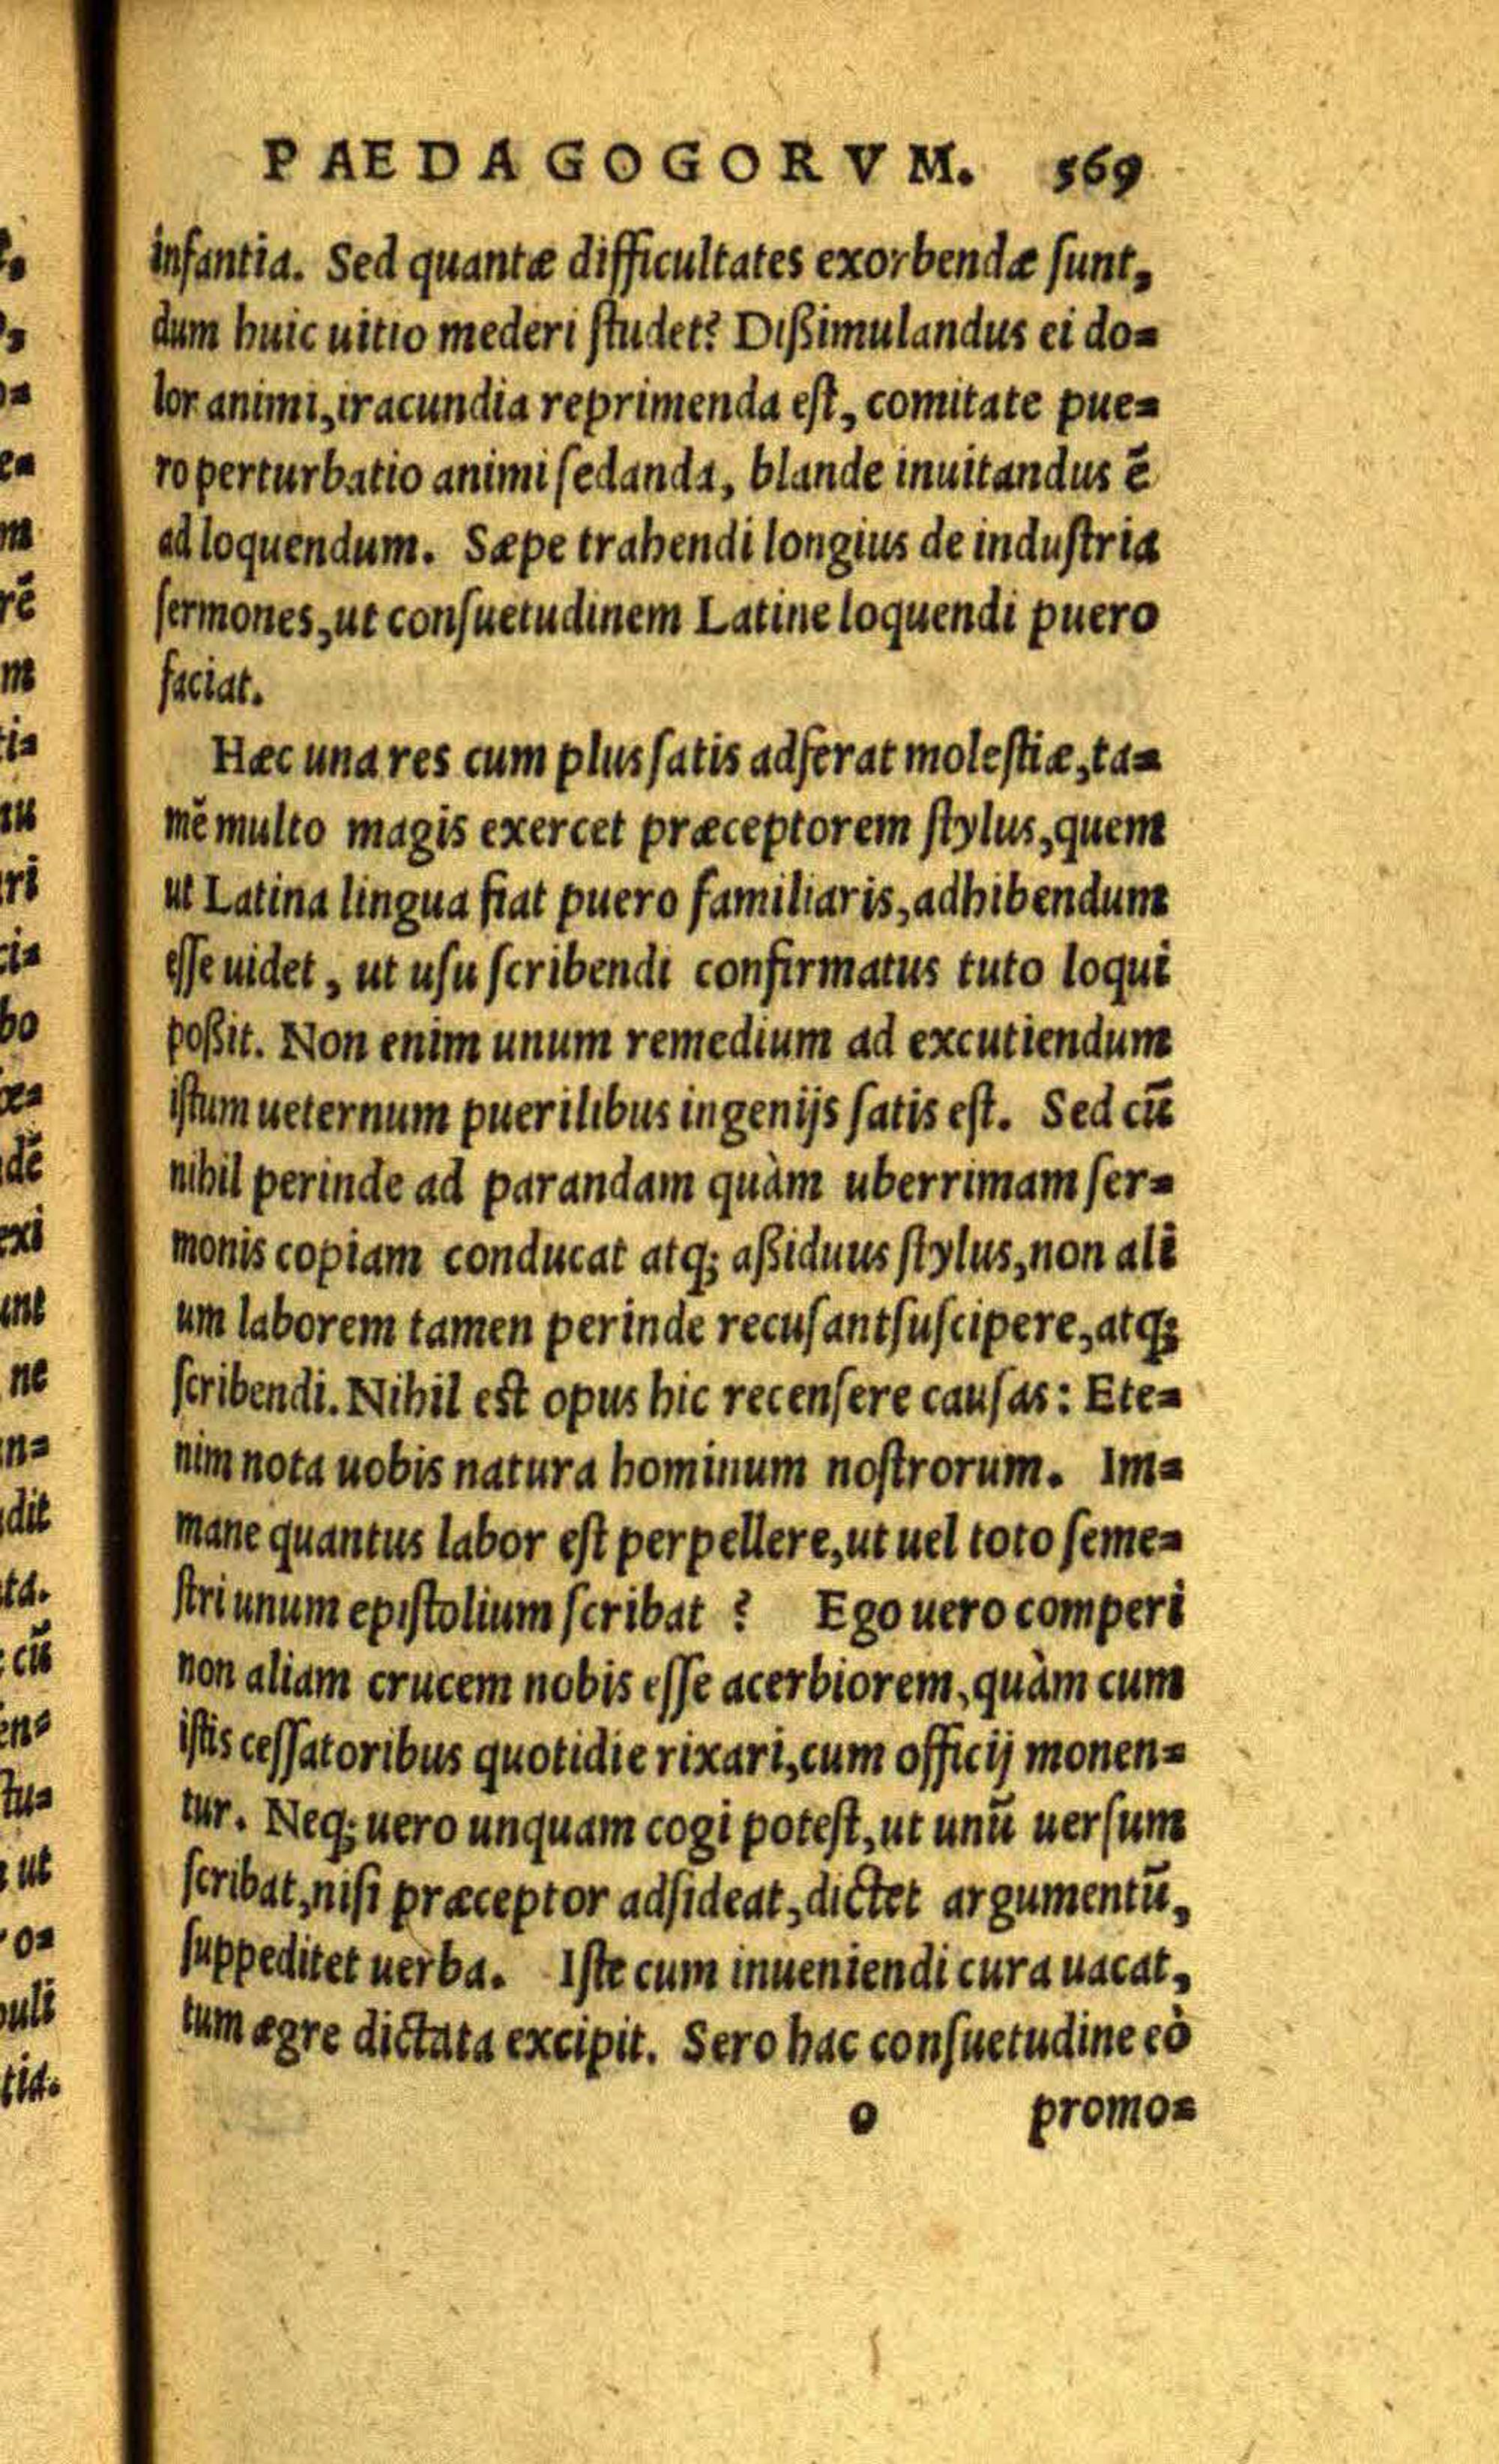 PAEDAGOGORVM. 569
infantia. Sed quantæ difficultates exorbendæ ſunt,
dum huic uitio mederi ſtudet? Dißimulandus ei do=
lor animi, iracundia reprimenda eſt, comitate pue=
ro perturbatio animi ſedanda, blande inuitandus ẽ
ad loquendum. Sæpe trahendi longius de induſtria
ſermones, ut conſuetudinem Latine loquendi puero
faciat.
Hæc una res cum plus ſatis adferat moleſtiæ, ta=
mẽ multo magis exercet præceptorem ſtylus, quem
ut Latina lingua fiat puero familiaris, adhibendum
eſſe uidet, ut uſu ſcribendi confirmatus tuto loqui
poßit. Non enim unum remedium ad excutiendum
iſtum ueternum puerilibus ingenijs ſatis eſt. Sed cũ
nihil perinde ad parandam quàm uberrimam ſer=
monis copiam conducat atq; aßiduus ſtylus, non ali
um laborem tamen perinde recuſant ſuſcipere, atq;
ſcribendi. Nihil est opus hic recenſere cauſas: Ete=
nim nota uobis natura hominum noſtrorum. Im=
mane quantus labor eſt perpellere, ut uel toto ſeme=
ſtri unum epiſtolium ſcribat ? Ego uero comperi
non aliam crucem nobis eſſe acerbiorem, quàm cum
iſtis ceſſatoribus quotidie rixari, cum officij monen=
tur. Neq; uero unquam cogi poteſt, ut unũ uerſum
ſcribat, niſi præceptor adſideat, dictet argumentũ,
ſuppeditet uerba. Iſte cum inueniendi cura uacat,
tum ægre dictata excipit. Sero hac conſuetudine eò
o promo=